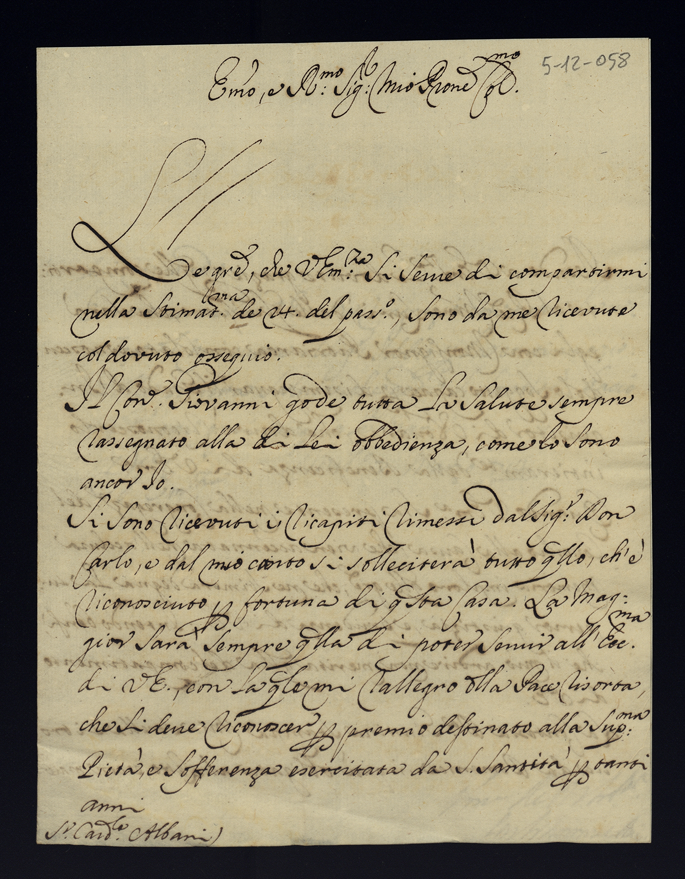 5-12-058
Em̃o, e R.mo Sig.r Mio Pron Col.mo
Le grẽ, che V Em.za Si Serve di compartirmi
nella Stimat.ma de 24. del pass.o, Sono da me ricevute
col dovuto ossequio.
Il Con.e Giovanni gode tutta La Salute sempre
rassegnato alla di Lei obbedienza, come lo Sono
ancor Io.
Si Sono ricevuti i ricapiti rimessi dal Sig.r Don
Carlo, e dal mio canto si solleciterà tutto qllo, ch'è
riconosciuto p fortuna di qsta Casa. La Mag-
gior Sarà Sempre qlla di poter Servir all'Ecc.ma
di VE., con La qle mi rallegro della Pace risorta,
che Si deve riconoscer p premio destinato alla Sup.ma
Pietà, e Sofferenza esercitata da S. Santità p tanti
anni
S.r Card.le Albani